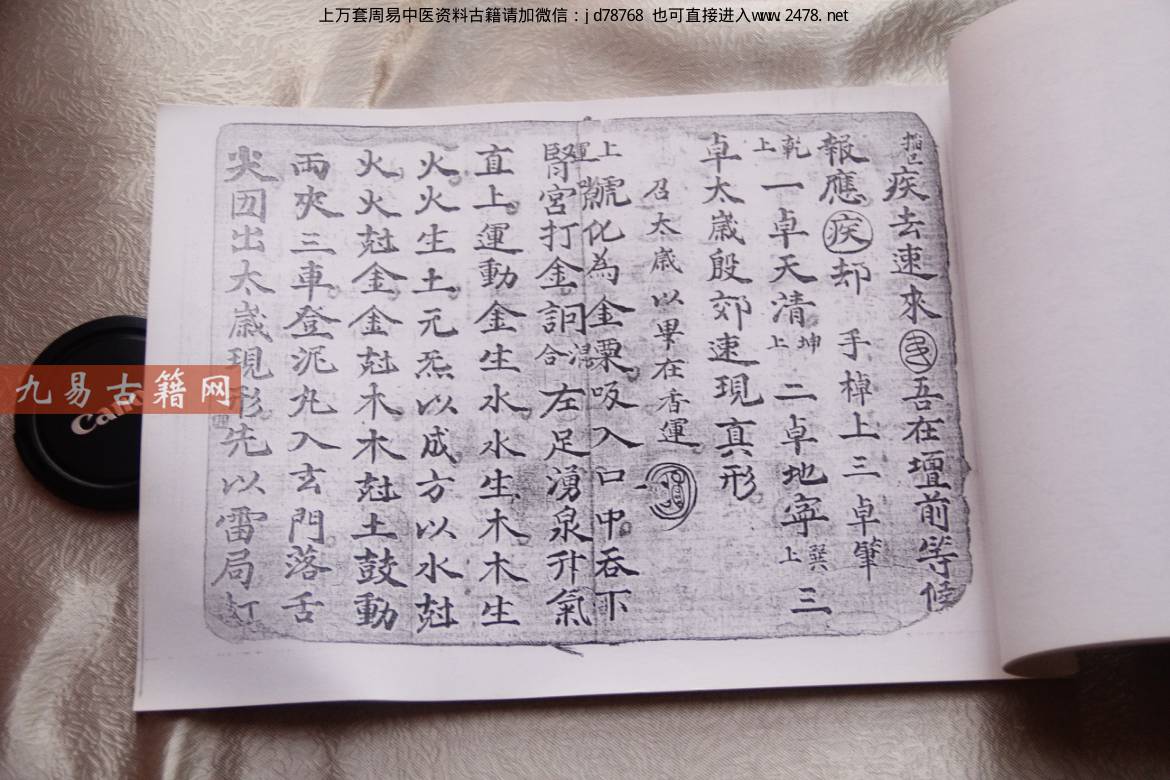 上万套周易中医资料古籍请加微信：jd78768 也可直接进入www.2478.net
疾去速來 吾在壇前等候
報應疾却 手棹上三卓筆
乾上一卓天清坤上二卓地寧巽上三
卓太歲殷郊速現真形
召太歲以畢在香運
上號化為金粟吸入口中吞下
腎宮打金詗混合左足湧泉升氣
直上運動金生水水生木木生
火火生土元炁以成方以水尅
火火尅金金尅木木尅土鼓動
兩夾三車登泥丸入玄門落舌
尖囙出太歲現形先以雷局打
九易古籍网
Can